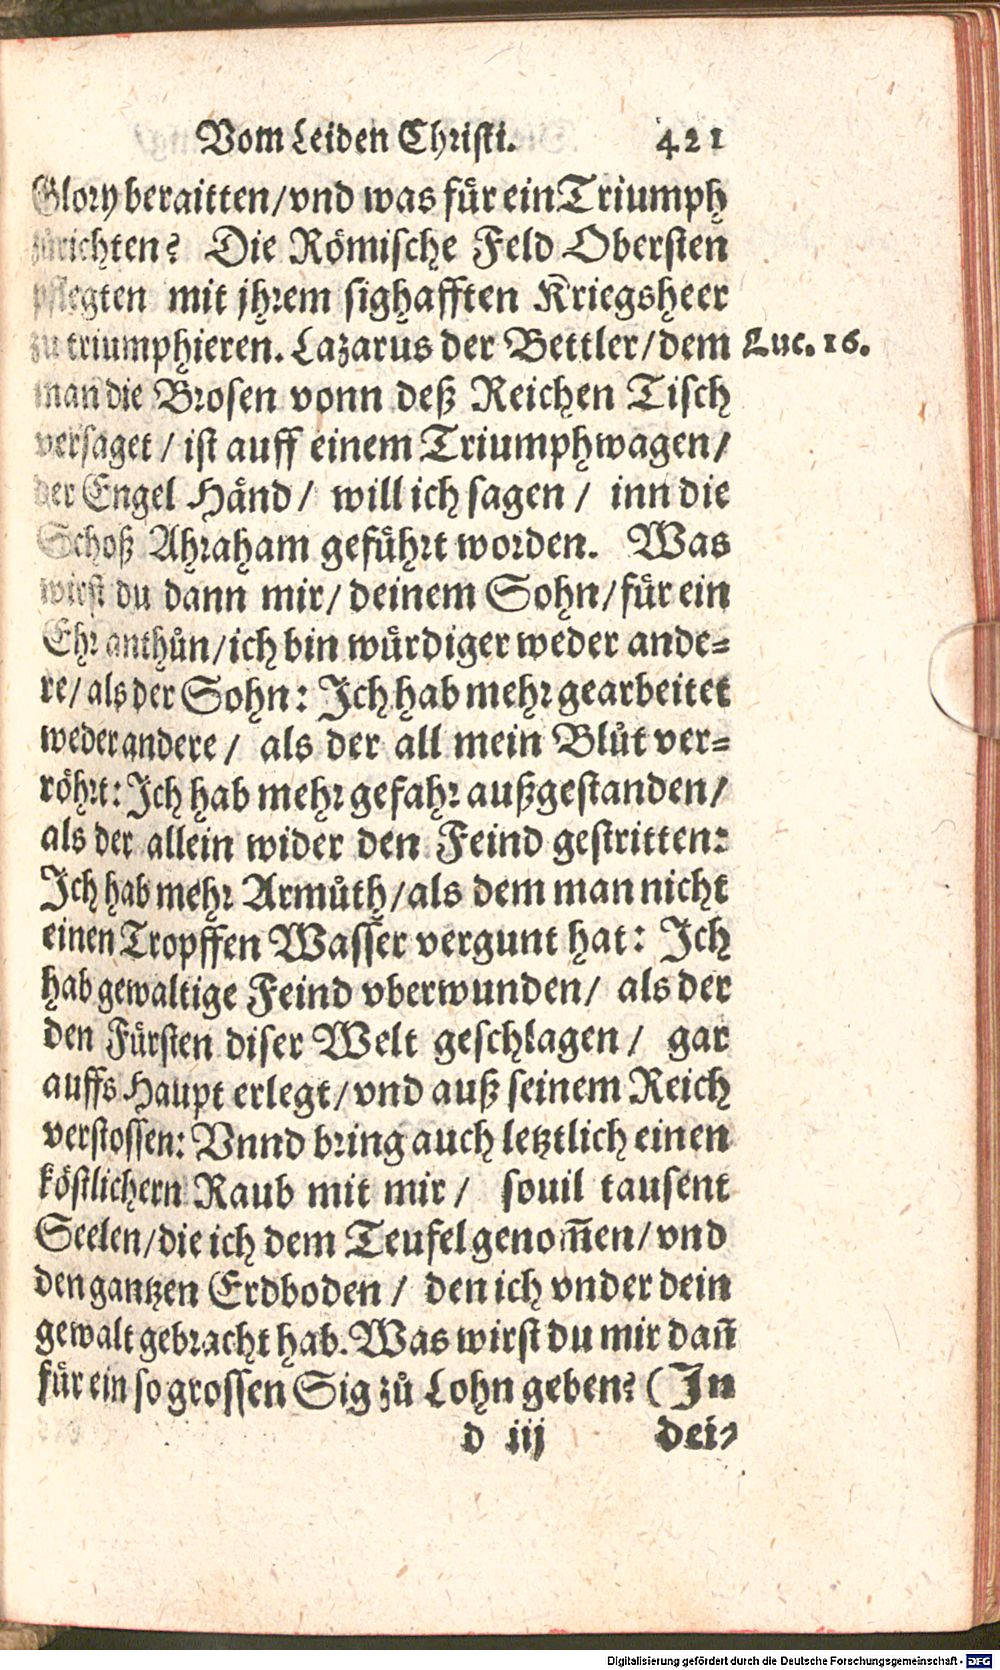 Vom Leiden Christi. 421
Glory beraitten/vnd was für ein Triumph
zůrichten? Die Römische Feld Obersten
pflegten mit jhrem sighafften Kriegsheer
zu triumphieren. Lazarus der Bettler/dem
Luc. 16.
man die Brosen vonn deß Reichen Tisch
versaget / ist auff einem Triumphwagen/
der Engel Händ/ will ich sagen / inn die
Schoß Ahraham geführt worden. Was
wirst du dann mir/ deinem Sohn/für ein
Ehr anthůn/ich bin würdiger weder ande=
re/als der Sohn: Ich hab mehr gearbeitet
weder andere / als der all mein Blůt ver=
röhrt: Ich hab mehr gefahr außgestanden/
als der allein wider den Feind gestritten:
Ich hab mehr Armůth/als dem man nicht
einen Tropffen Wasser vergunt hat: Ich
hab gewaltige Feind vberwunden/ als der
den Fürsten diser Welt geschlagen / gar
auffs Haupt erlegt/vnd auß seinem Reich
verstossen: Vnnd bring auch letztlich einen
köstlichern Raub mit mir / souil tausent
Seelen/die ich dem Teufel genom̃en/vnd
den gantzen Erdboden / den ich vnder dein
gewalt gebracht hab. Was wirst du mir dañ
für ein so grossen Sig zů Lohn geben? (In
d iij dei=
Digitalisierung gefördert durch die Deutsche Forschungsgemeinschaft - DFG